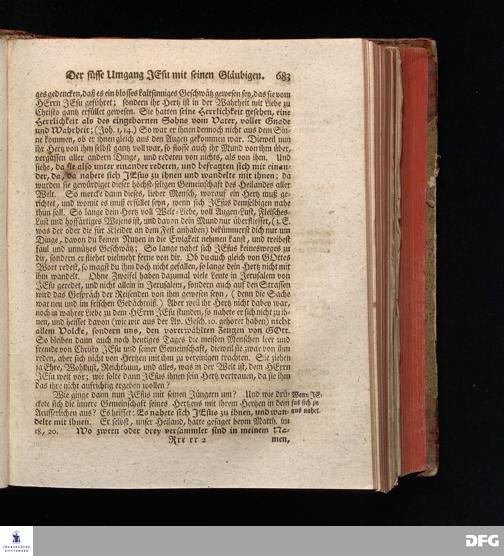 Der süsse Umgang JEsu mit seinen Gläubigen. 683
ges gedencken, daß es ein blosses kaltsinniges Geschwätz gewesen sey, das sie vom
HErrn JEsu geführet; sondern ihr Hertz ist in der Wahrheit mit Liebe zu
Christo gantz erfüllet gewesen. Sie hatten seine Herrlichkeit gesehen, eine
Herrlichkeit als des eingebornen Sohns vom Vater, voller Gnade
und Wahrheit; (Joh. 1, 14.) So war er ihnen dennoch nicht aus dem Sin-
ne kommen, ob er ihnen gleich aus den Augen gekommen war. Dieweil nun
ihr Hertz von ihm selbst gantz voll war, so flosse auch ihr Mund von ihm über,
vergassen aller andern Dinge, und redeten von nichts, als von ihm. Und
siehe, da sie also unter einander redeten, und befragten sich mit einan-
der, da, da nahete sich JEsus zu ihnen und wandelte mit ihnen; da
wurden sie gewürdiget dieser höchst-seligen Gemeinschaft des Heilandes aller
Welt. So mercke dann dieses, lieber Mensch, worauf ein Hertz muß ge-
richtet, und womit es muß erfüllet seyn, wenn sich JEsus demselbigen nahe
thun soll. So lange dein Hertz voll Welt-Liebe, voll Augen-Lust, Fleisches-
Lust und hoffärtiges Wesens ist, und davon dein Mund nur überfliesset, (z. E.
was der oder die für Kleider an dem Fest anhaben) bekümmerst dich nur um
Dinge, davon du keinen Nutzen in die Ewigkeit nehmen kanst, und treibest
faul und unnützes Geschwätz; So lange nahet sich JEsus keinesweges zu
dir, sondern er fliehet vielmehr ferne von dir. Ob du auch gleich von GOttes
Wort redest, so magst du ihm doch nicht gefallen, so lange dein Hertz nicht mit
ihm wandelt. Ohne Zweifel haben dazumal viele Leute in Jerusalem von
JEsu geredet, und nicht allein in Jerusalem, sondern auch auf den Strassen
wird das Gespräch der Reisenden von ihm gewesen seyn, (denn die Sache
war neu und im frischen Gedächtniß.) Aber weil ihr Hertz nicht dabey war,
noch in wahrer Liebe zu dem HErrn JEsu stunden, so nahete er sich nicht zu ih-
nen, und heisset davon (wie wir aus der Ap. Gesch. 10. gehöret haben) nicht
allem Volcke, sondern uns, den vorerwählten Zeugen von GOtt.
So bleiben dann auch noch heutiges Tages die meisten Menschen leer und
fremde von Christo JEsu und seiner Gemeinschaft, dieweil sie zwar von ihm
reden, aber sich nicht von Hertzen mit ihm zu vereinigen trachten. Sie ziehen
ja Ehre, Wohllust, Reichthum, und alles, was in der Welt ist, dem HErrn
JEsu weit vor; wie solte dann JEsus ihnen sein Hertz vertrauen, da sie ihm
das ihre nicht aufrichtig ergeben wollen?
Wie ginge dann nun JEsus mit seinen Jüngern um? Und wie drü-
ckete sich die innere Gemeinschaft seines Hertzens mit ihrem Hertzen in dem
Aeusserlichen aus? Es heisset: Es nahete sich JEsus zu ihnen, und wan-
delte mit ihnen. Er selbst, unser Heiland, hatte gesaget beym Matth. im
18, 20. Wo zween oder drey versammlet sind in meinem Na-
Wenn JE-
sus sich zu
uns nahet.
Rrr rr 2 men,
FRANCKESCHE
STIFTUNGEN
DFG